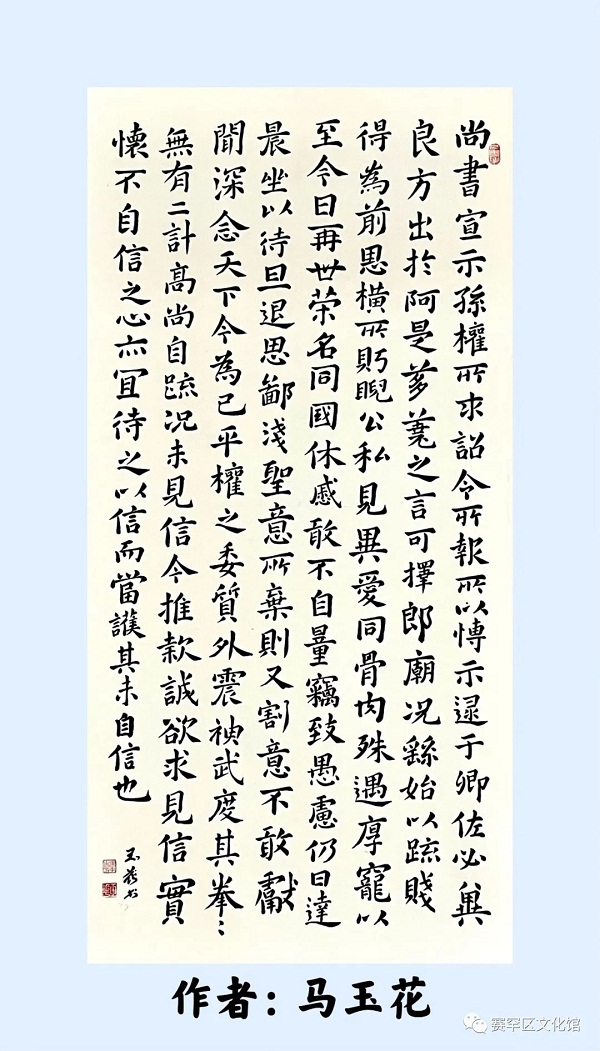 尚書宣示孫權所求詔令所報所以愽示逮于卿佐必兾
良方出於阿是芻蕘之言可擇郎廟况繇始以疏賤
得為前恩橫所眄睨公私見異愛同骨肉殊遇厚寵以
至今日再世荣名同國休慼敢不自量竊致愚慮仍日達
晨坐以待旦退思鄙淺聖意所棄則又割意不敢獻
聞深念天下今為已平權之委質外震神武度其拳〻
無有二計高尚自疏况未見信今推款誠欲求見信實
懷不自信之心亦宜待之以信而當護其未自信也
玉花书
作者：马玉花
赛罕区文化馆